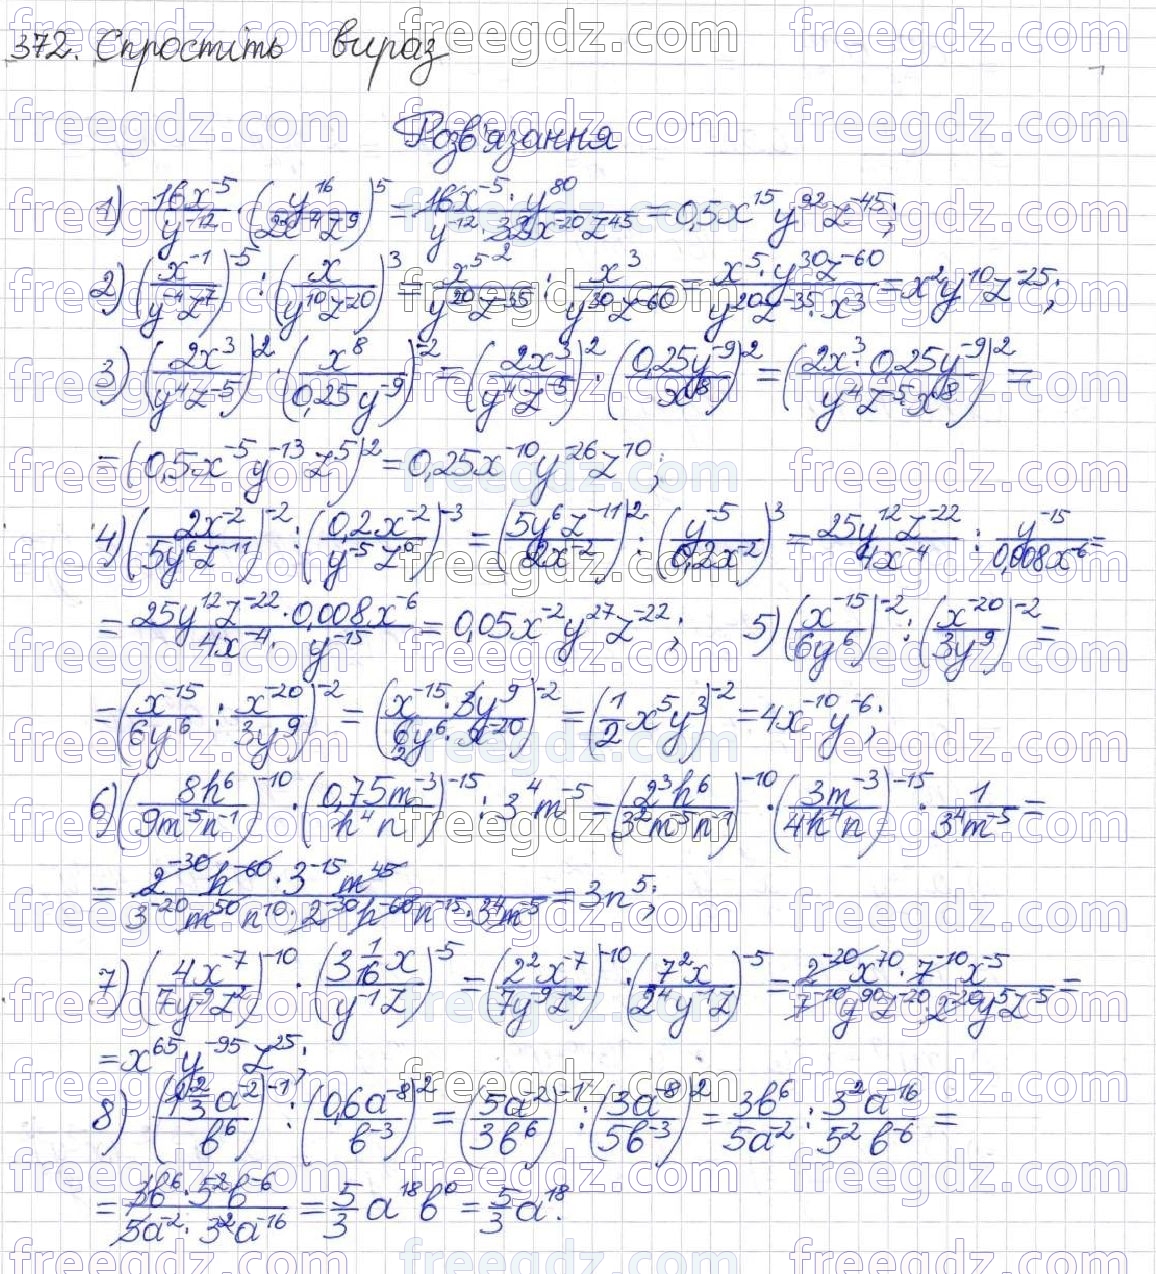 372. Спростіть вираз
Розв'язання
1) 16x⁻⁵/y⁻¹² · (y¹⁶/2x⁻⁴z⁹)⁵ = 16x⁻⁵·y⁸⁰/y⁻¹²·32x⁻²⁰z⁴⁵ = 0,5x¹⁵y⁹²z⁻⁴⁵;
2) (x⁻¹/y⁻⁴z⁷)⁻⁵ : (x/y¹⁰z⁻²⁰)³ = x⁵/y²⁰z⁻³⁵ : x³/y³⁰z⁻⁶⁰ = x⁵·y³⁰z⁻⁶⁰/y²⁰z⁻³⁵·x³ = x²y¹⁰z⁻²⁵;
3) (2x³/y⁴z⁻⁵)² · (x⁸/0,25y⁻⁹)⁻² = (2x³/y⁴z⁻⁵)² · (0,25y⁻⁹/x⁸)² = (2x³·0,25y⁻⁹/y⁴z⁻⁵·x⁸)² =
= (0,5x⁻⁵y⁻¹³z⁵)² = 0,25x⁻¹⁰y⁻²⁶z¹⁰;
4) (2x⁻²/5y⁶z⁻¹¹)⁻² : (0,2x⁻²/y⁻⁵z⁰)⁻³ = (5y⁶z⁻¹¹/2x⁻²)² : (y⁻⁵/0,2x⁻²)³ = 25y¹²z⁻²²/4x⁻⁴ : y⁻¹⁵/0,008x⁻⁶ =
= 25y¹²z⁻²²·0,008x⁻⁶/4x⁻⁴·y⁻¹⁵ = 0,05x⁻²y²⁷z⁻²²; 5) (x⁻¹⁵/6y⁶)⁻² : (x⁻²⁰/3y⁹)⁻² =
= (x⁻¹⁵/6y⁶ : x⁻²⁰/3y⁹)⁻² = (x⁻¹⁵·3y⁹/6y⁶·x⁻²⁰)⁻² = (1/2 x⁵y³)⁻² = 4x⁻¹⁰y⁻⁶;
6) (8h⁶/9m⁻⁵n⁻¹)⁻¹⁰ · (0,75m⁻³/h⁴n)⁻¹⁵ : 3⁴m⁻⁵ = (2³h⁶/3²m⁻⁵n⁻¹)⁻¹⁰ · (3m⁻³/4h⁴n)⁻¹⁵ · 1/3⁴m⁻⁵ =
= 2⁻³⁰h⁻⁶⁰·3⁻¹⁵m⁴⁵/3⁻²⁰m⁵⁰n¹⁰·2⁻³⁰h⁻⁶⁰n⁻¹⁵·3⁴m⁻⁵ = 3n⁵;
7) (4x⁻⁷/7y⁻⁹z²)⁻¹⁰ · (3 1/16 x/y⁻¹z)⁻⁵ = (2²x⁻⁷/7y⁻⁹z²)⁻¹⁰ · (7²x/2⁴y⁻¹z)⁻⁵ = 2⁻²⁰x⁷⁰·7⁻¹⁰x⁻⁵/7⁻¹⁰y⁹⁰z⁻²⁰·2⁻²⁰y⁵z⁻⁵ =
= x⁶⁵y⁻⁹⁵z²⁵;
8) (1 2/3 a⁻²/b⁶)⁻¹ : (0,6a⁻⁸/b⁻³)² = (5a⁻²/3b⁶)⁻¹ : (3a⁻⁸/5b⁻³)² = 3b⁶/5a⁻² : 3²a⁻¹⁶/5²b⁻⁶ =
= 3b⁶·5²b⁻⁶/5a⁻²·3²a⁻¹⁶ = 5/3 a¹⁸b⁰ = 5/3 a¹⁸.
freegdz.com